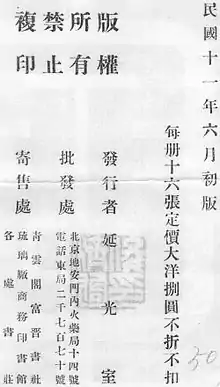 民國十一年六月初版
每册十六張定價大洋捌圓不折不扣
版權所有
禁止複印
發行者延光室
北京地安門內火藥局十四號
批發處
電話東局二千七百七十號
寄售處
青雲閣富晉書社
琉璃廠商務印書館
各處書莊
50